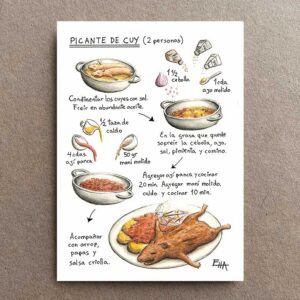 PICANTE DE CUY (2 personas)
1 ½
cebolla
1 cda.
ajo molido
Condimentar los cuyes con sal.
Freir en abundante aceite.
½ taza
de
caldo
En la grasa que quede
sofreir la cebolla, ajo,
sal, pimienta y comino.
4 cdas
ají panca
50 gr
maní molido
Agregar ají panca y cocinar
20 min. Agregar maní molido,
caldo y cocinar 10 min.
Acompañar
con arroz,
papas y
salsa criolla.